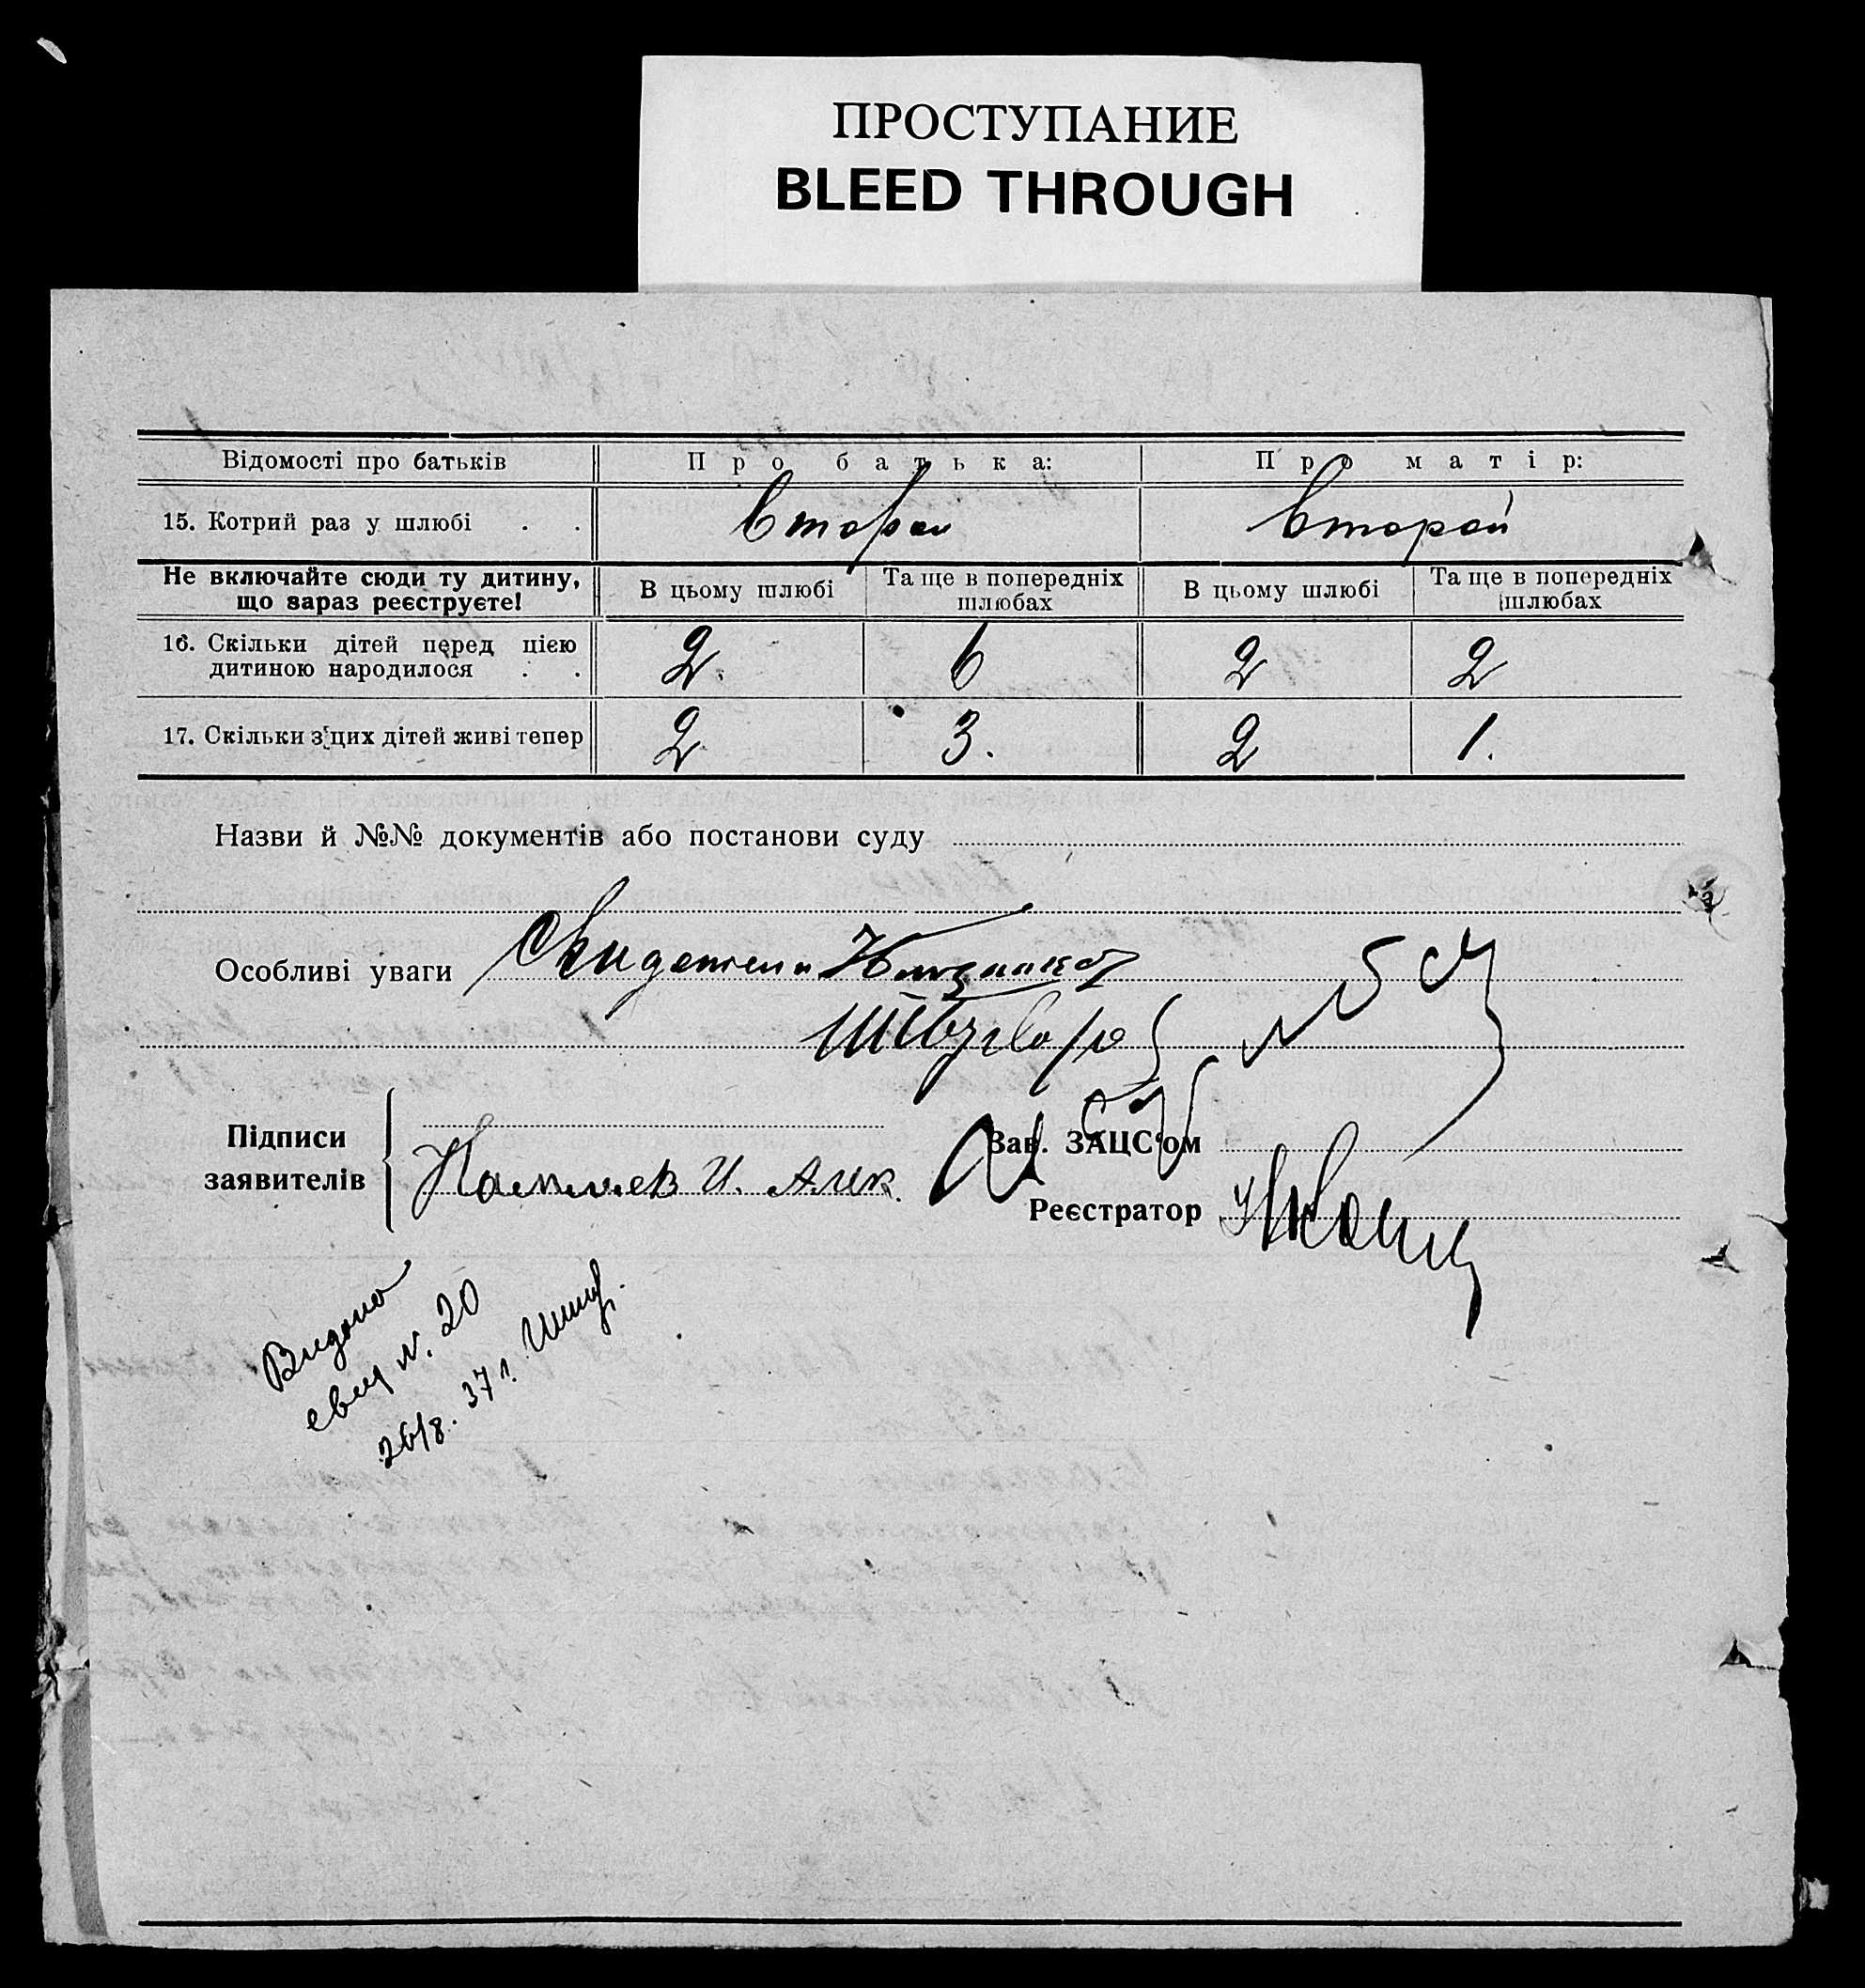 ПРОСТУПАНИЕ
BLEED THROUGH
Відомості про батьків Про батька: Про матір:
15. Котрий раз у шлюбі . . второй второй
Не включайте сюди ту дитину, що зараз реєструєте! В цьому шлюбі Та ще в попередніх шлюбах В цьому шлюбі Та ще в попередніх шлюбах
16. Скільки дітей перед цією дитиною народилося . . 2 6 2 2
17. Скільки з цих дітей живі тепер 2 3. 2 1.
Назви й №№ документів або постанови суду
Особливі уваги Свидетели
Підписи заявителів
Зав. ЗАЦС'ом
Реєстратор
Видано
свид N. 20
26/8. 37 г.